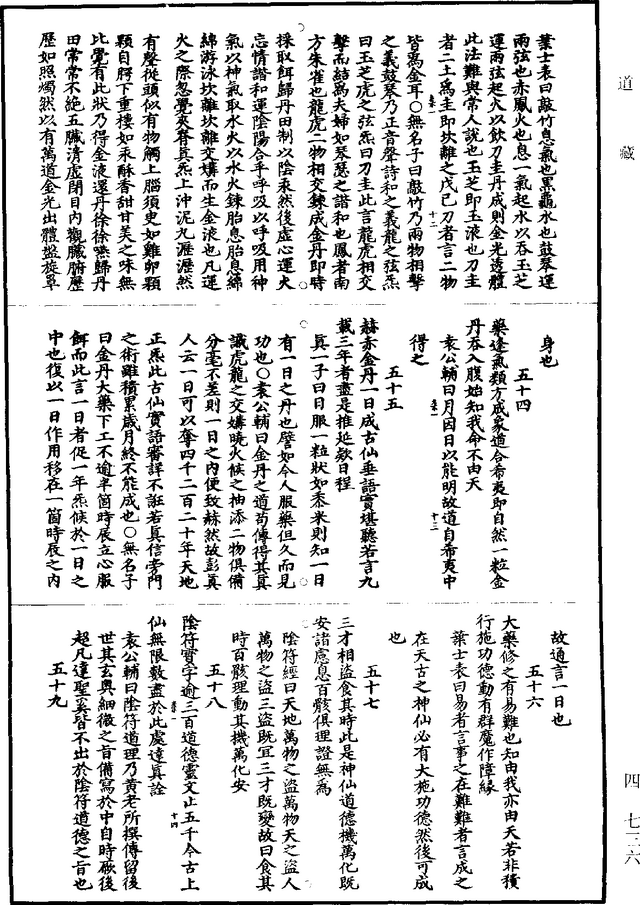 道藏
葉士表曰敲竹息氣也黑龜水也鼓琴運
兩弦也赤鳳火也息一氣起水以吞玉芝
運兩弦起火以飲刀圭丹成則金光透體
此法難與常人說也玉芝即玉液也刀圭
者二土爲圭即坎離之戊己刀者言二物
皆爲金耳○無名子曰敲竹乃兩物相擊
之義鼓琴乃正音聲詩和之義龍之弦炁
曰玉芝虎之弦炁曰刀圭此言龍虎相交
擊而結爲夫婦如琴瑟之諧和也鳳者南
方朱雀也龍虎二物相交鍊成金丹即時
採取餌歸丹田制以陰汞然後虛心運火
忘情諧和運陰陽合乎呼吸以呼吸用神
氣以神氣取水火以水火鍊胎息胎息綿
綿游泳坎離坎離交媾而生金液也凡運
火之際忽覺夾脊真炁上沖泥丸瀝瀝然
有聲從頭似有物觸上腦須臾如雞卵顆
顆自腭下重樓如汞酥香甜甘美之味無
比覺有此狀乃得金液還丹徐徐嚥歸丹
田常常不絕五臟清虛閉目內觀臟腑歷
歷如照燭然以有萬道金光出體盤旋罩
身也
五十四
藥逢氣類方成象道合希夷即自然一粒金
丹吞入腹始知我命不由天
袁公輔曰月因日以能明故道自希夷中
得之
五十五
赫赤金丹一日成古仙垂語實堪聽若言九
載三年者盡是推延欵日程
真一子曰日服一粒狀如黍米則知一日
有一日之丹也譬如今人服藥但久而見
功也○袁公輔曰金丹之道苟傳得其真
識虎龍之交媾曉火候之抽添二物俱備
分毫不差則一日之內便致赫然故彭真
人云一日可以奪四千二百二十年天地
正炁此古仙實語審詳不誑若真信旁門
之術雖積累歲月終不能成也○無名子
曰金丹大藥下工不逾半箇時辰立心服
餌而此言一日者促一年炁候於一日之
中也復以一日作用移在一箇時辰之內
故通言一日也
五十六
大藥修之有易難也知由我亦由天若非積
行施功德動有群魔作障緣
葉士表曰易者言事之在難難者言成之
在天古之神仙必有大施功德然後可成
也
五十七
三才相盜食其時此是神仙道德機萬化既
安諸慮息百骸俱理證無爲
陰符經曰天地萬物之盜萬物天之盜人
萬物之盜三盜既宜三才既變故曰食其
時百骸理動其機萬化安
五十八
陰符寶字逾三百道德靈文止五千今古上
仙無限數盡於此處達真詮
袁公輔曰陰符道理乃黃老所撰傳留後
世其玄奧細微之旨備寫於中自時厥後
超凡達聖莫皆不出於陰符道德之旨也
五十九
四 七三六